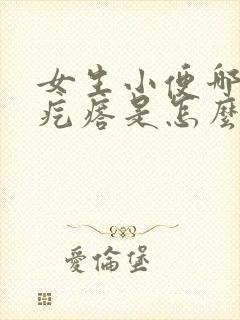 女生小便那
疙瘩是怎麼
愛倫堡